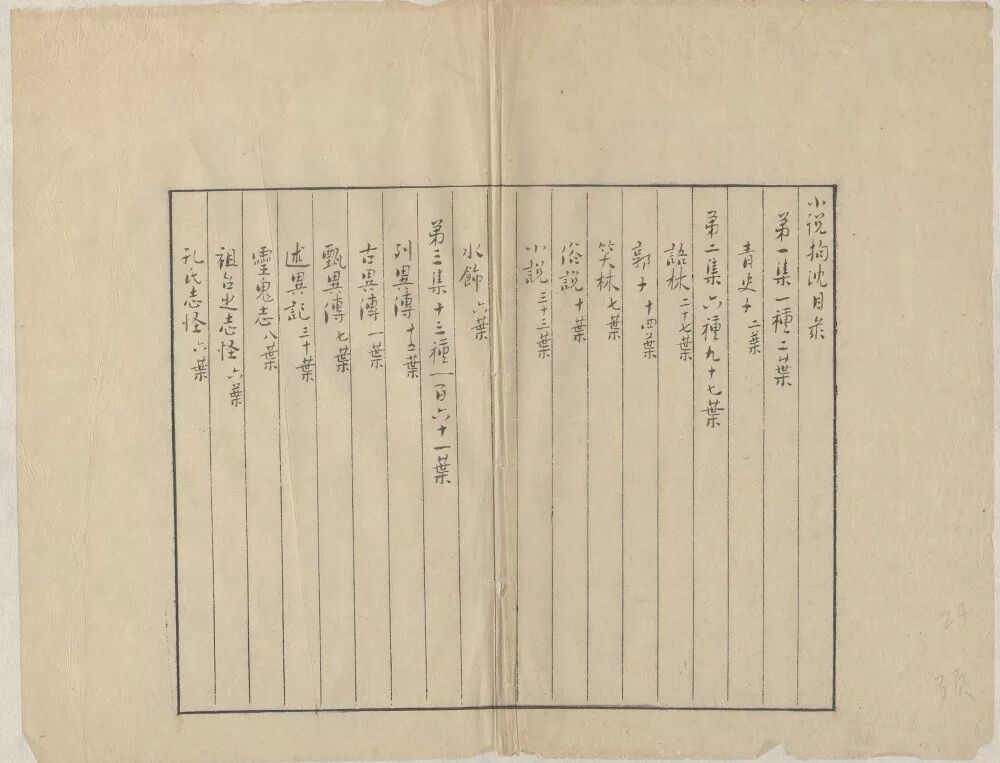 小説拘沈目录
第一集一種二葉
青史子 二葉
第二集六種九十七葉
語林 二十七葉
郭子 十四葉
笑林 七葉
俗説 十葉
小説 三十三葉
水飾 六葉
第三集十三種一百六十一葉
列異傳 十五葉
古異傳 一葉
甄異傳 七葉
述異記 三十葉
靈鬼志 八葉
祖台之志怪 六葉
孔氏志怪 六葉
24